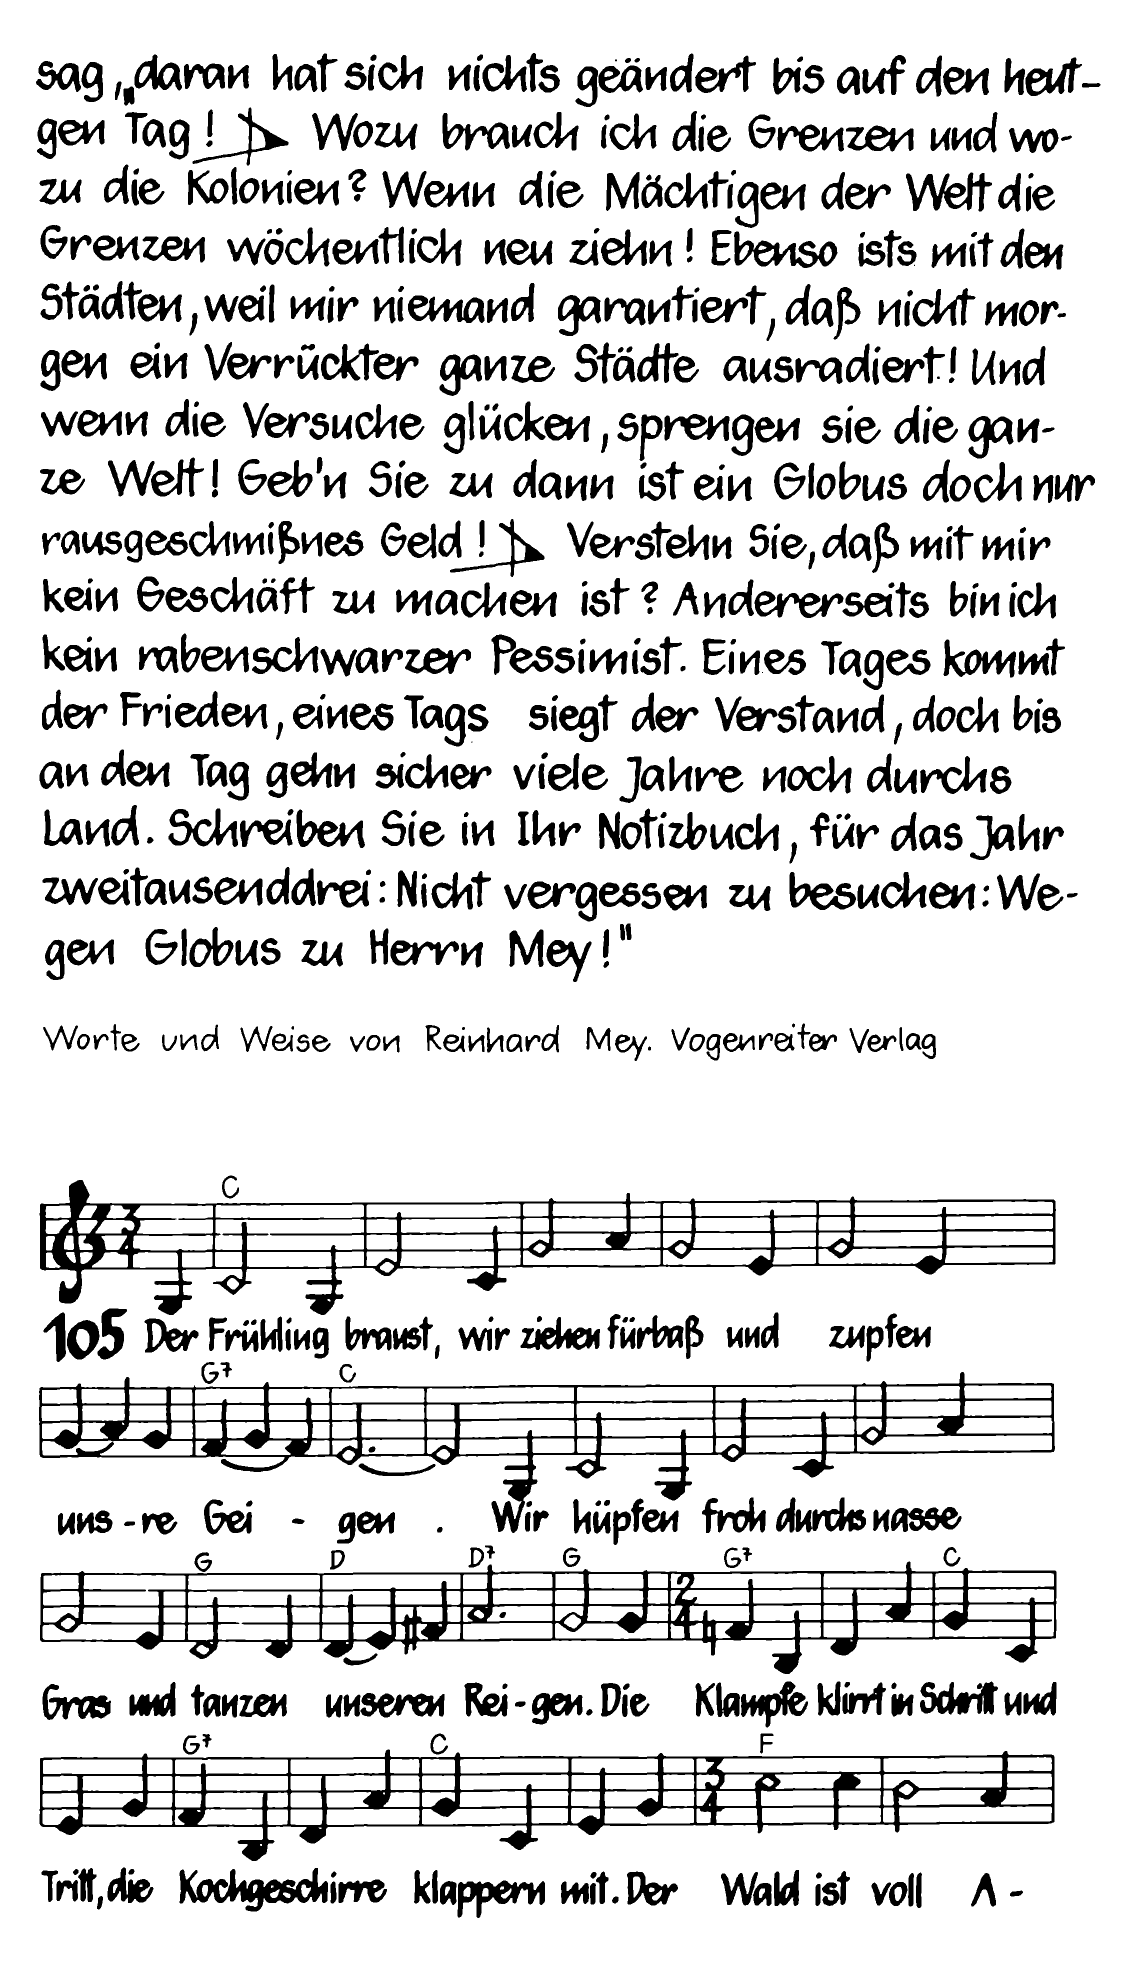 sag, „daran hat sich nichts geändert bis auf den heut-
gen Tag! Wozu brauch ich die Grenzen und wo-
zu die Kolonien? Wenn die Mächtigen der Welt die
Grenzen wöchentlich neu ziehn! Ebenso ists mit den
Städten, weil mir niemand garantiert, daß nicht mor-
gen ein Verrückter ganze Städte ausradiert! Und
wenn die Versuche glücken, sprengen sie die gan-
ze Welt! Geb'n Sie zu dann ist ein Globus doch nur
rausgeschmißnes Geld! Verstehn Sie, daß mit mir
kein Geschäft zu machen ist? Andererseits bin ich
kein rabenschwarzer Pessimist. Eines Tages kommt
der Frieden, eines Tags siegt der Verstand, doch bis
an den Tag gehn sicher viele Jahre noch durchs
Land. Schreiben Sie in Ihr Notizbuch, für das Jahr
zweitausenddrei: Nicht vergessen zu besuchen: We-
gen Globus zu Herrn Mey!"
Worte und Weise von Reinhard Mey. Vogenreiter Verlag
C
3/4
105 Der Frühling braust, wir ziehen fürbaß und zupfen
G7 C
uns-re Gei - gen . Wir hüpfen froh durchs nasse
G D D7 G G7 C
2/4
Gras und tanzen unseren Rei-gen. Die Klampfe klirrt in Schritt und
G7 C F
3/4
Tritt, die Kochgeschirre klappern mit. Der Wald ist voll A-